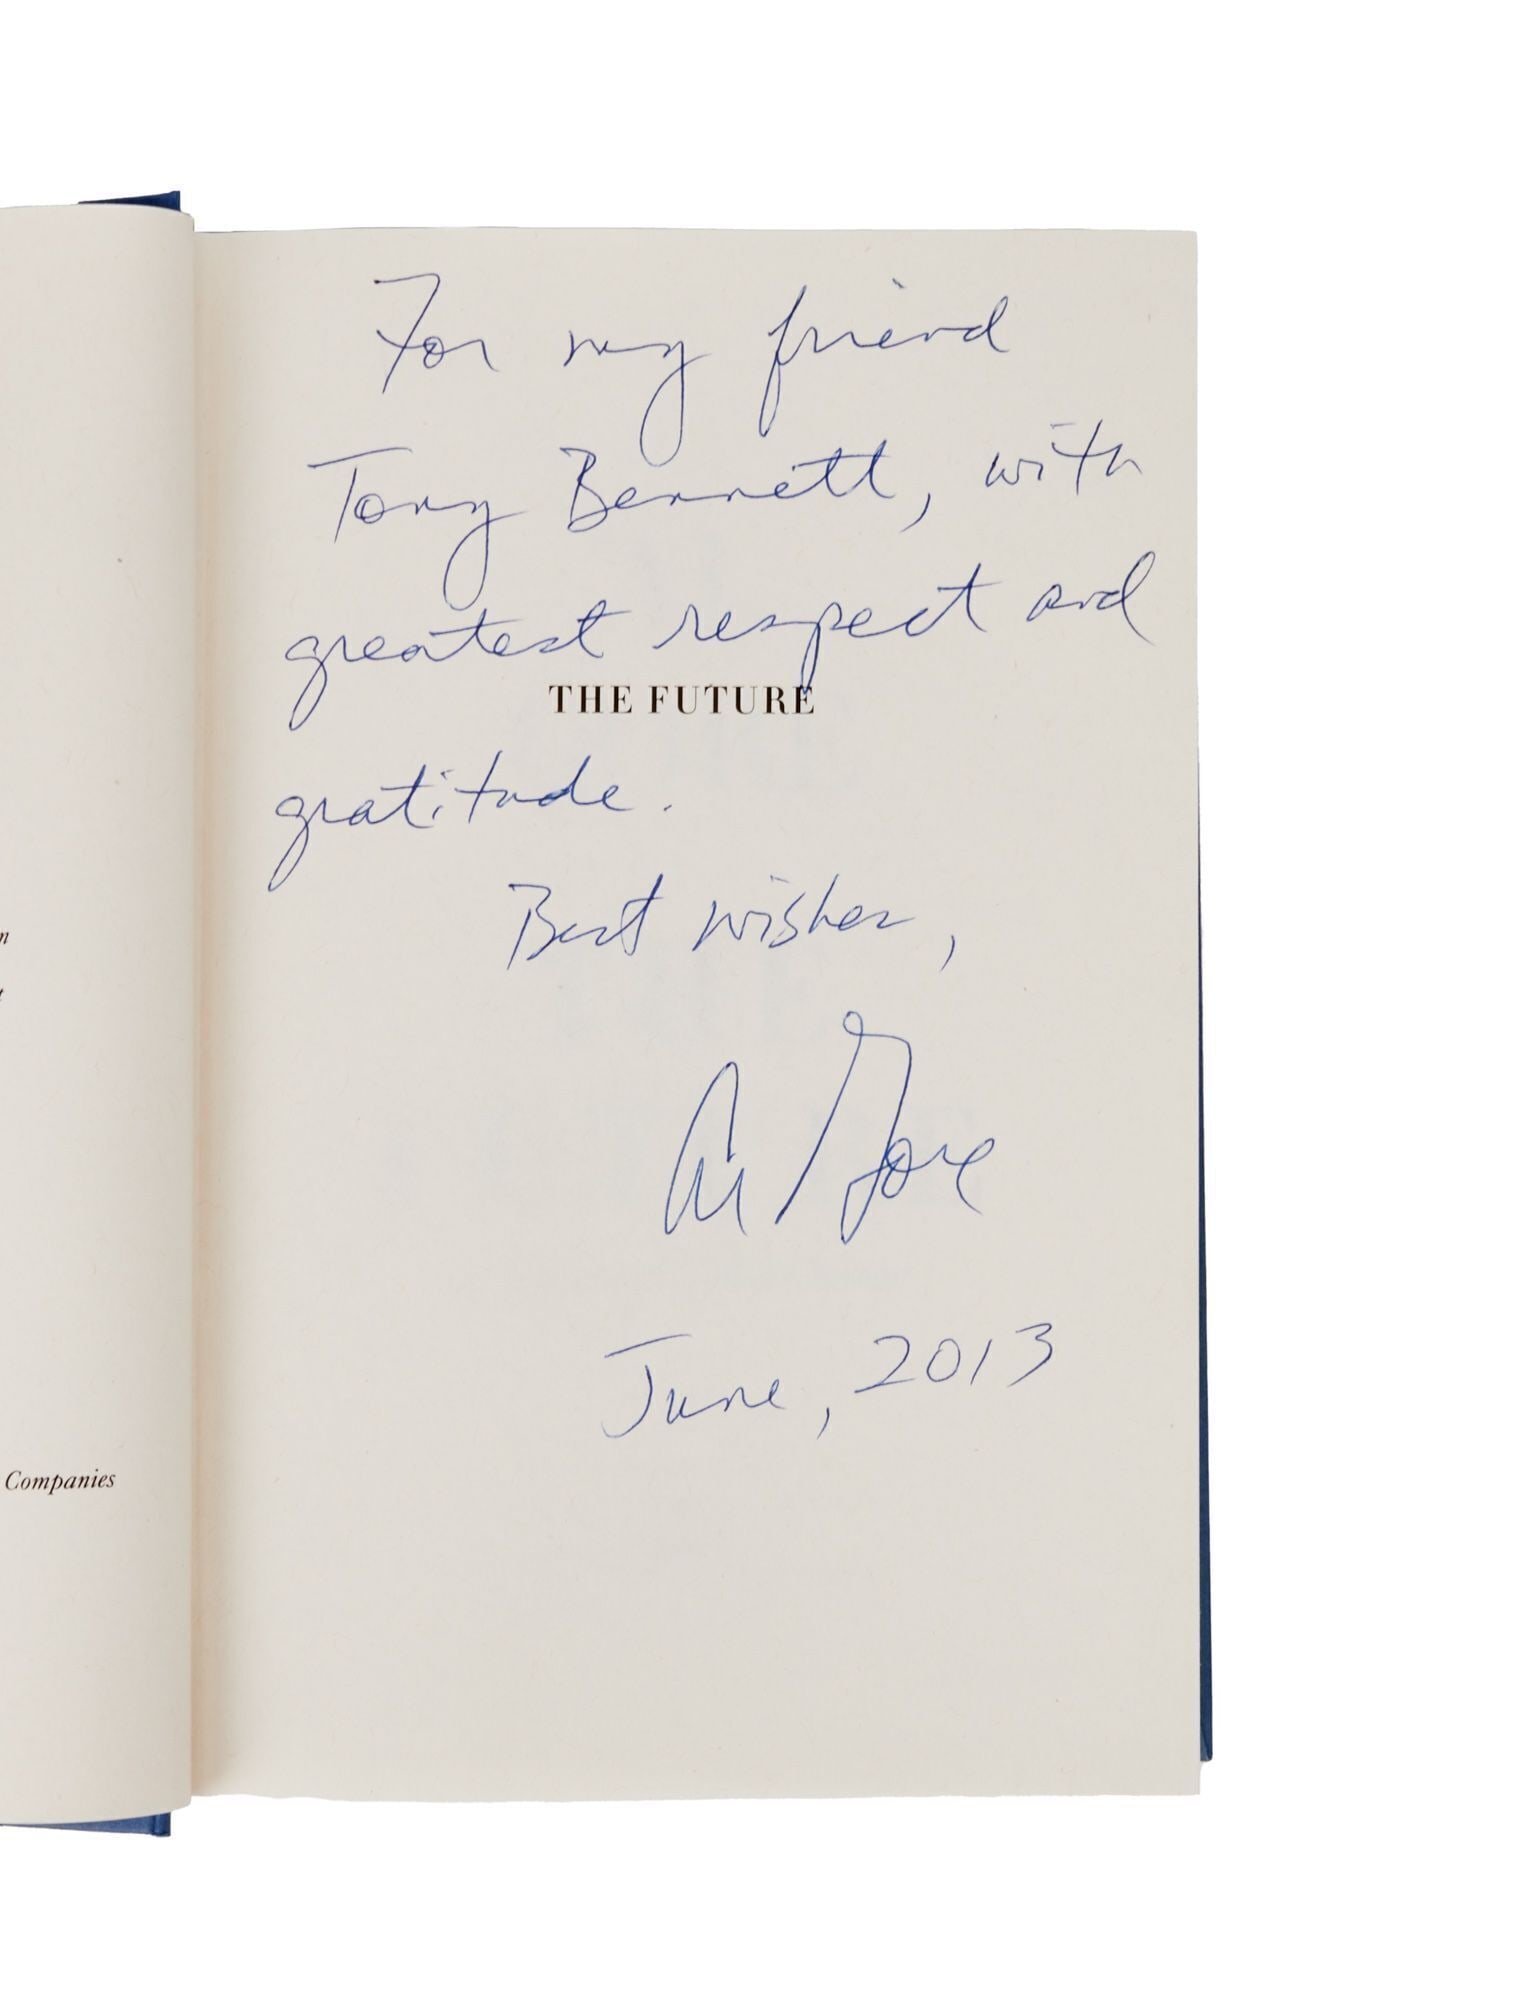 For my friend
Tony Bennett, with
greatest respect and
THE FUTURE
gratitude.
Best wishes,
Al Gore
June, 2013
Companies